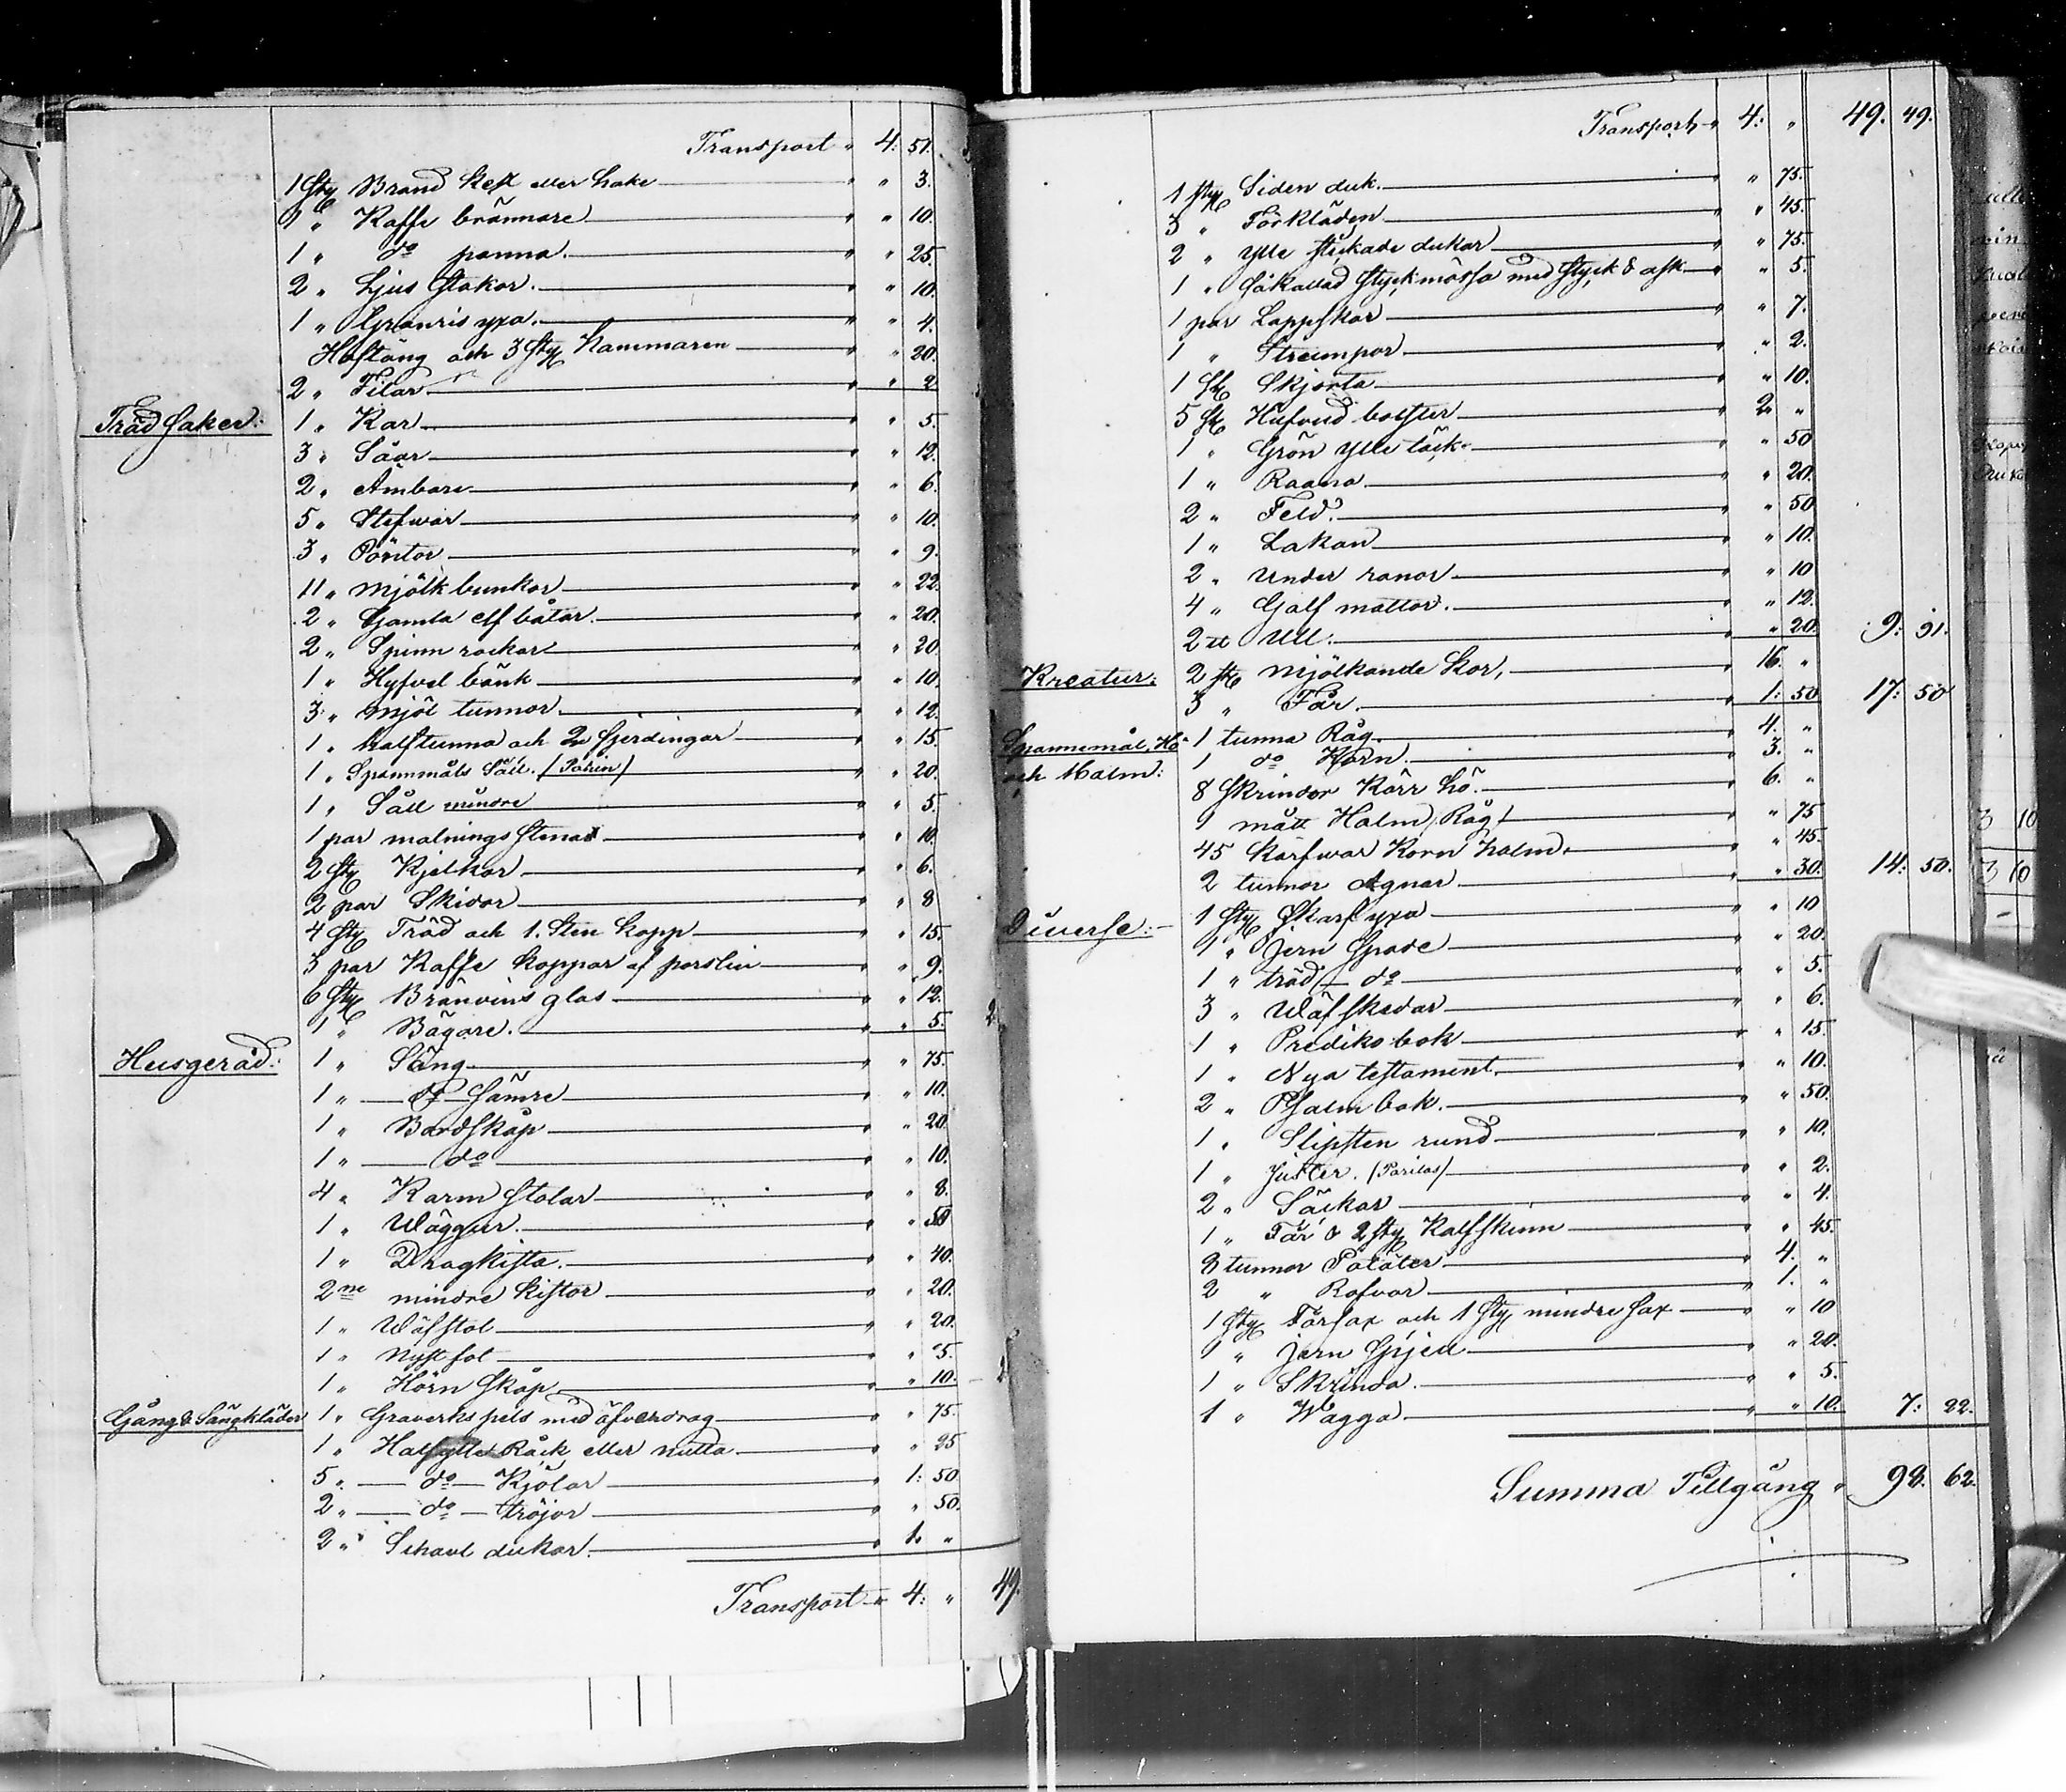 Transport " 4: 51.
1 sty Brand kest eller hake " " 3.
1 " Kaffe brännare " " 10.
1 " do panna. " " 25.
2 " Ljus stakar. " " 10.
1 " Granris yxa. " " 4.
Hoftång och 3 sty hammaren " " 20.
2 " Filar " " 2
Träd saker: 1 " Kar " " 5.
3 " Såar " " 12.
2 " Ämbare " " 6.
5 " Stefwar " " 10.
3 " Pöntor " " 9.
11 " mjölk bunkar " " 22.
2 " Gamla elf båtar. " " 20.
2 " Spinn rockar " " 20.
1 " Hyfvel bänk " " 10.
3 " mjöl tunnor " " 12.
1 " halftunna och 2 fjerdingar " " 15.
1 " Spannmåls Såll. " " 20.
1 " Såll mindre " " 5.
1 par malnings stenar " " 10.
2 sty Kjelkar " " 6.
2 par Skidor " " 8
4 sty Träd och 1. Sten kopp " " 15.
3 par Kaffe koppar af porslin " " 9.
6 sty Bränvins glas " " 12.
1 " Bägare. " " 5.
Husgeråd: 1 " Säng " " 75.
1 " do sämre " " 10.
1 " Bordskåp " " 20.
1 " do " " 10.
4 " Karm stolar " " 8.
1 " Wäggur. " " 50
1 " Dragkista. " " 40.
2ne mindre kistor " " 20.
1 " Wäfstol " " 20.
1 " Nystfot " " 5.
1 " Hörn skåp " " 10.
Gång & Sängkläder 1 " Graverks pels med öfverdrag " " 75.
1 " Halfylle Råck eller mutta " " 25
5 " do Kjölar " 1: 50
2 " do tröjor " " 50.
2 " Schavl dukar. " 1. "
Transport " 4: " 49.
Transport " 4: " 49. 49.
1 sty Siden duk. " " 75.
3 " Förkläden " " 45.
2 " ylle stickade dukar " " 75.
1 " såkallad styckmössa med styck & ask " " 5.
1 par Lappskor " " 7.
1 " Strumpor " " 2.
1 st Skjorta " " 10.
5 st Hufvud bolster " 2 "
1 " Grön ylle täck. " " 50
1 " Raana " " 20.
2 " Feld. " " 50
1 " Lakan " " 10.
2 " Under ranor " " 10
4 " Golf mattor. " " 12.
2 ℔ Ull. " " 20. 9: 91.
Kreatur: 2 st mjölkande kor, " 16. "
3 " Får. " 1: 50 17: 50
Spannemål, Hö 1 tunna Råg. " 4. "
och Halm: 1 do Korn. " 3. "
8 skrindor Kärr hö. " 6. "
1 mått Halm /Råg/ " " 75
45 karfwar Korn halm. " " 45.
2 tunnor Agnar " " 30. 14: 50.
Diverse: 1 sty Skarf yxa " " 10
1 " jern Spade " " 20.
1 " träd do " " 5.
3 " Wäf skedar " " 6.
1 " Prediko bok " " 15.
1 " Nya testament. " " 10.
2 " Psalm bok. " " 50.
1 " Slipsten rund " " 10.
1 " Juster. /Parilas/ " " 2.
2 " Säckar " " 4.
1 " Får & 2 sty Kalfskinn " " 45.
3 tunnor Potäter " 4. "
2 " Rofvor " 1. "
1 sty Fårsax och 1 sty mindre sax " " 10
1 " jern Spjell " " 20.
1 " Skrinda. " " 5.
1 " Wagga " " 10. 7: 22.
Summa Tillgång " 98. 62.